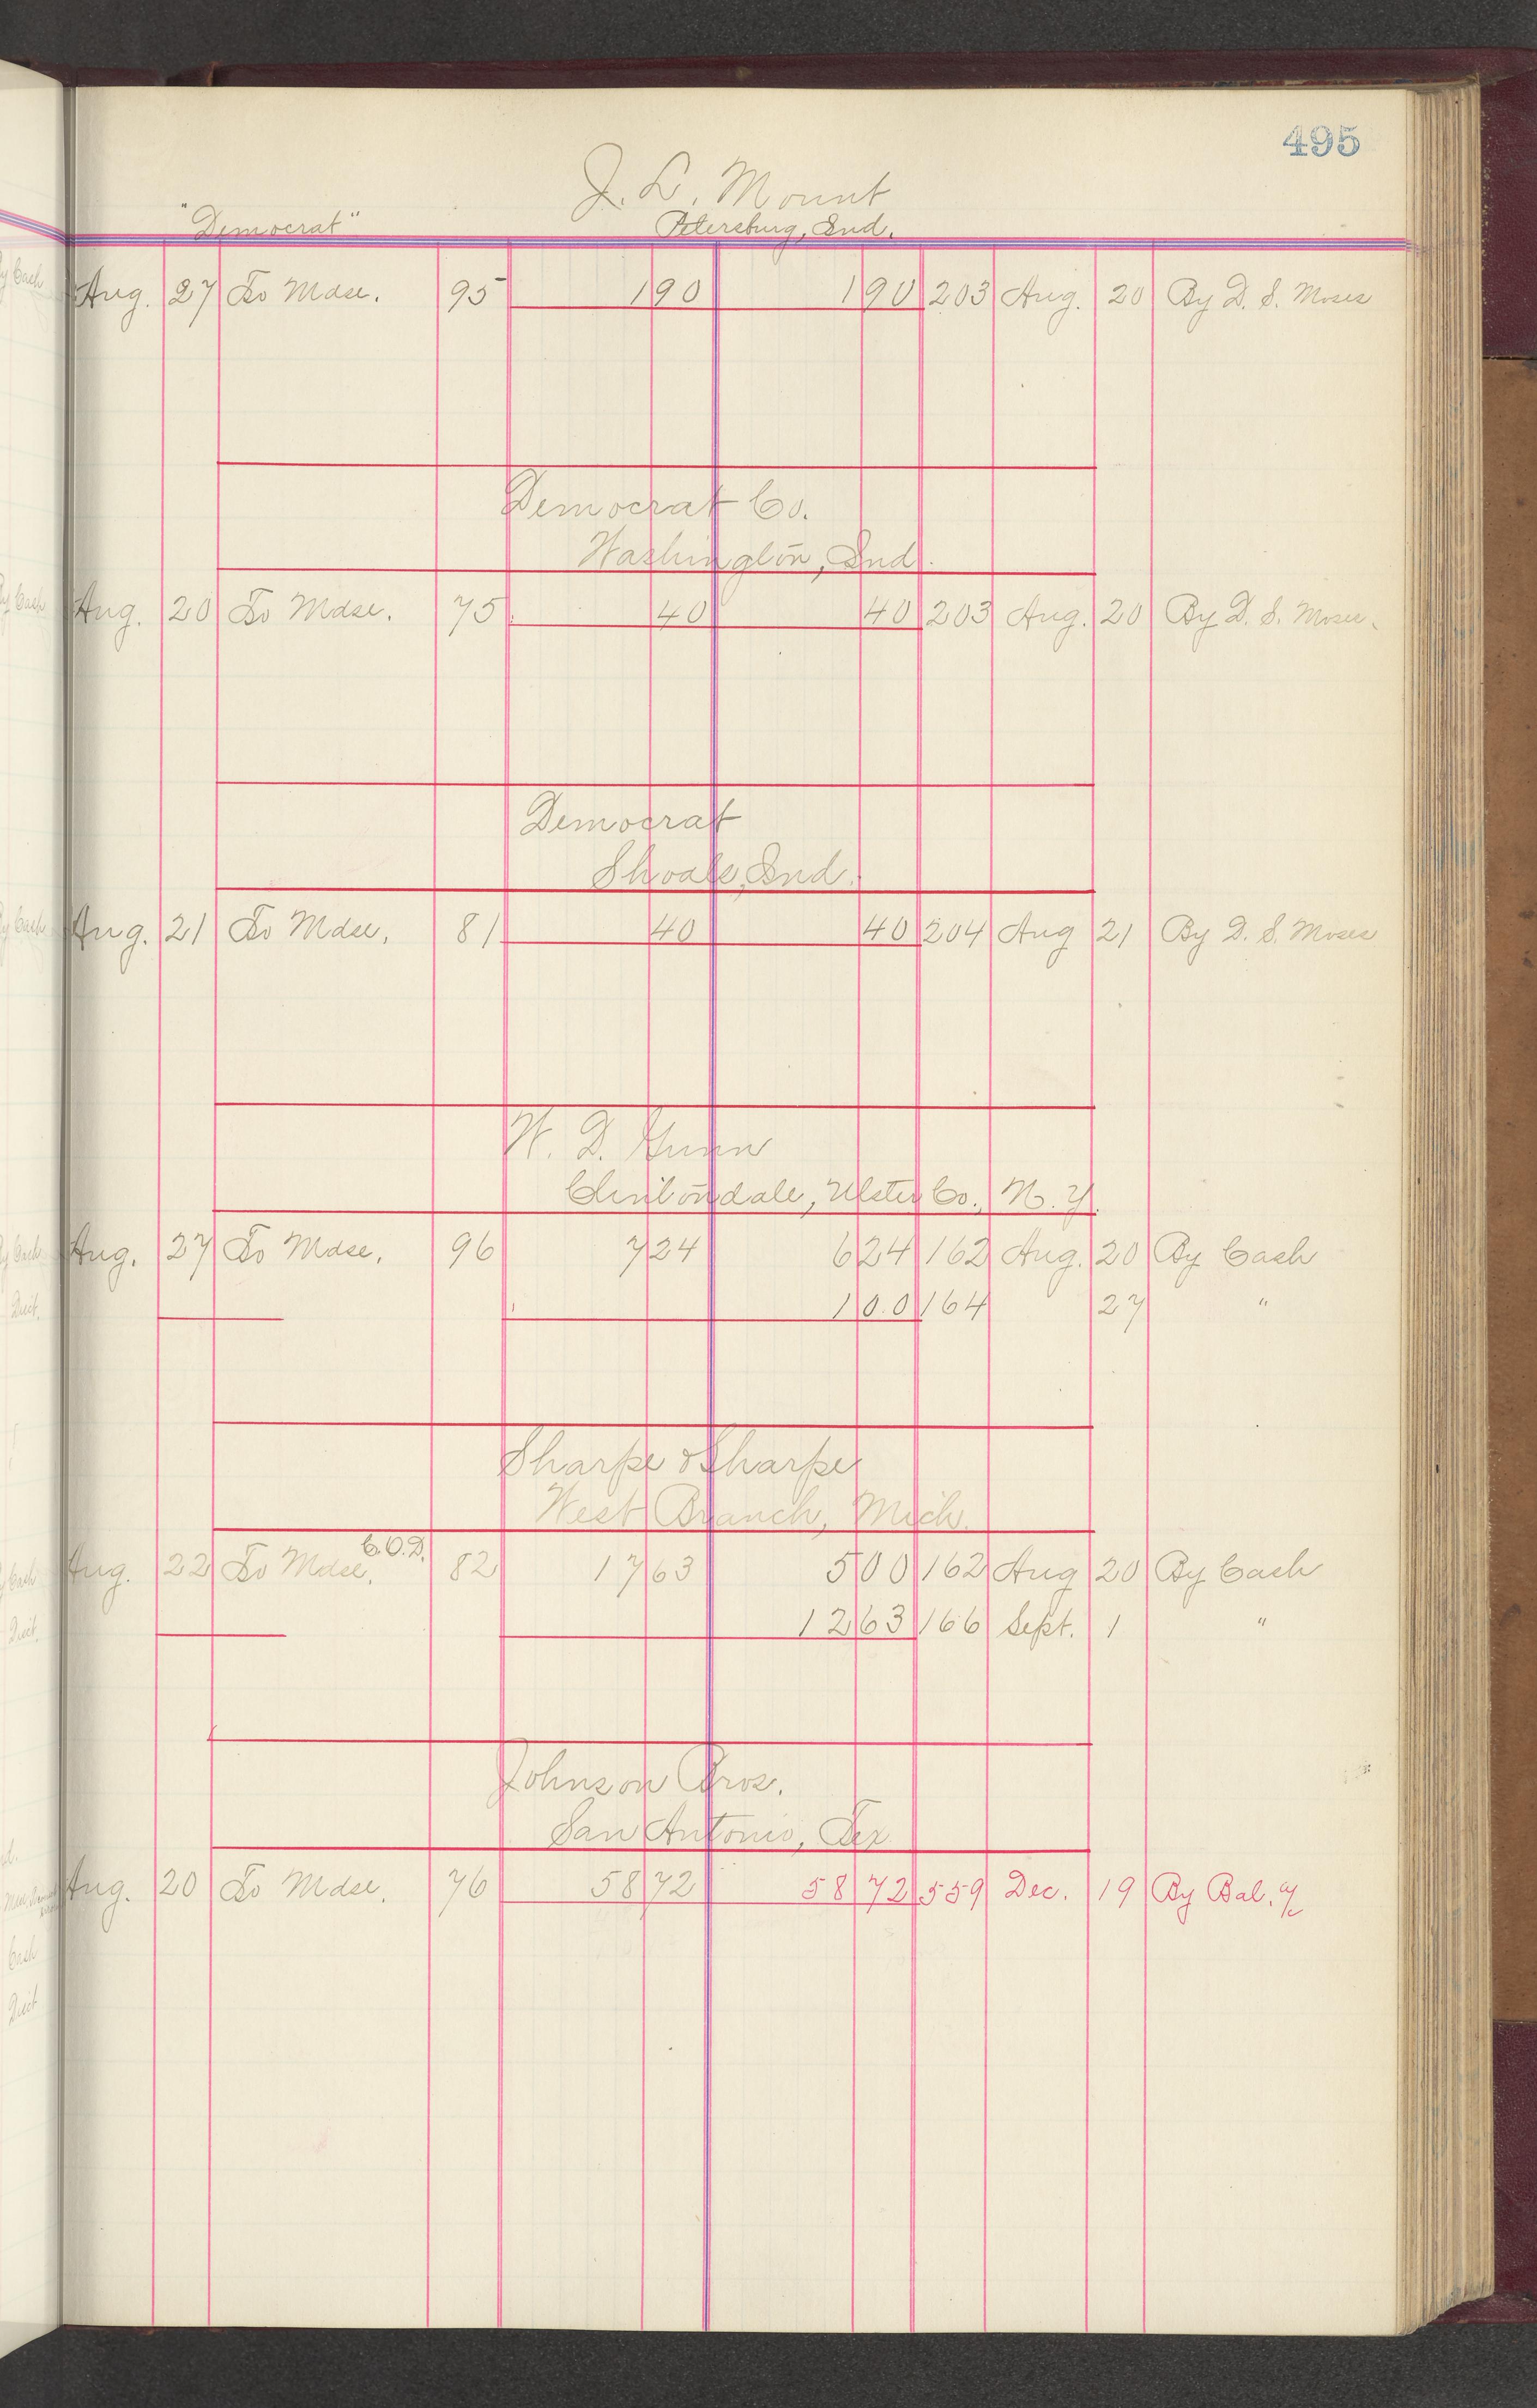 495
J. L. Mount
"Democrat" Petersburg, Ind.
Aug. 27 To Mdse. 95 1 90 1 90 203 Aug. 20 By D. S. Moses
Democrat Co.
Washington, Ind.
Aug. 20 To Mdse. 75 40 40 203 Aug. 20 By D. S. Moses
Democrat
Shoals, Ind.
Aug. 21 To Mdse. 81 40 40 204 Aug 21 By D. S. Moses
W. D. Gunn
Clintondale, Ulster Co., N. Y.
Aug. 27 To Mdse. 96 7 24 6 24 162 Aug. 20 By Cash
1 00 164 27 "
Sharpe & Sharpe
West Branch, Mich.
Aug. 22 To Mdse. C.O.D. 82 17 63 5 00 162 Aug 20 By Cash
12 63 166 Sept. 1 "
Johnson Bros.
San Antonio, Tex
Aug. 20 To Mdse. 76 58 72 58 72 559 Dec. 19 By Bal. a/c